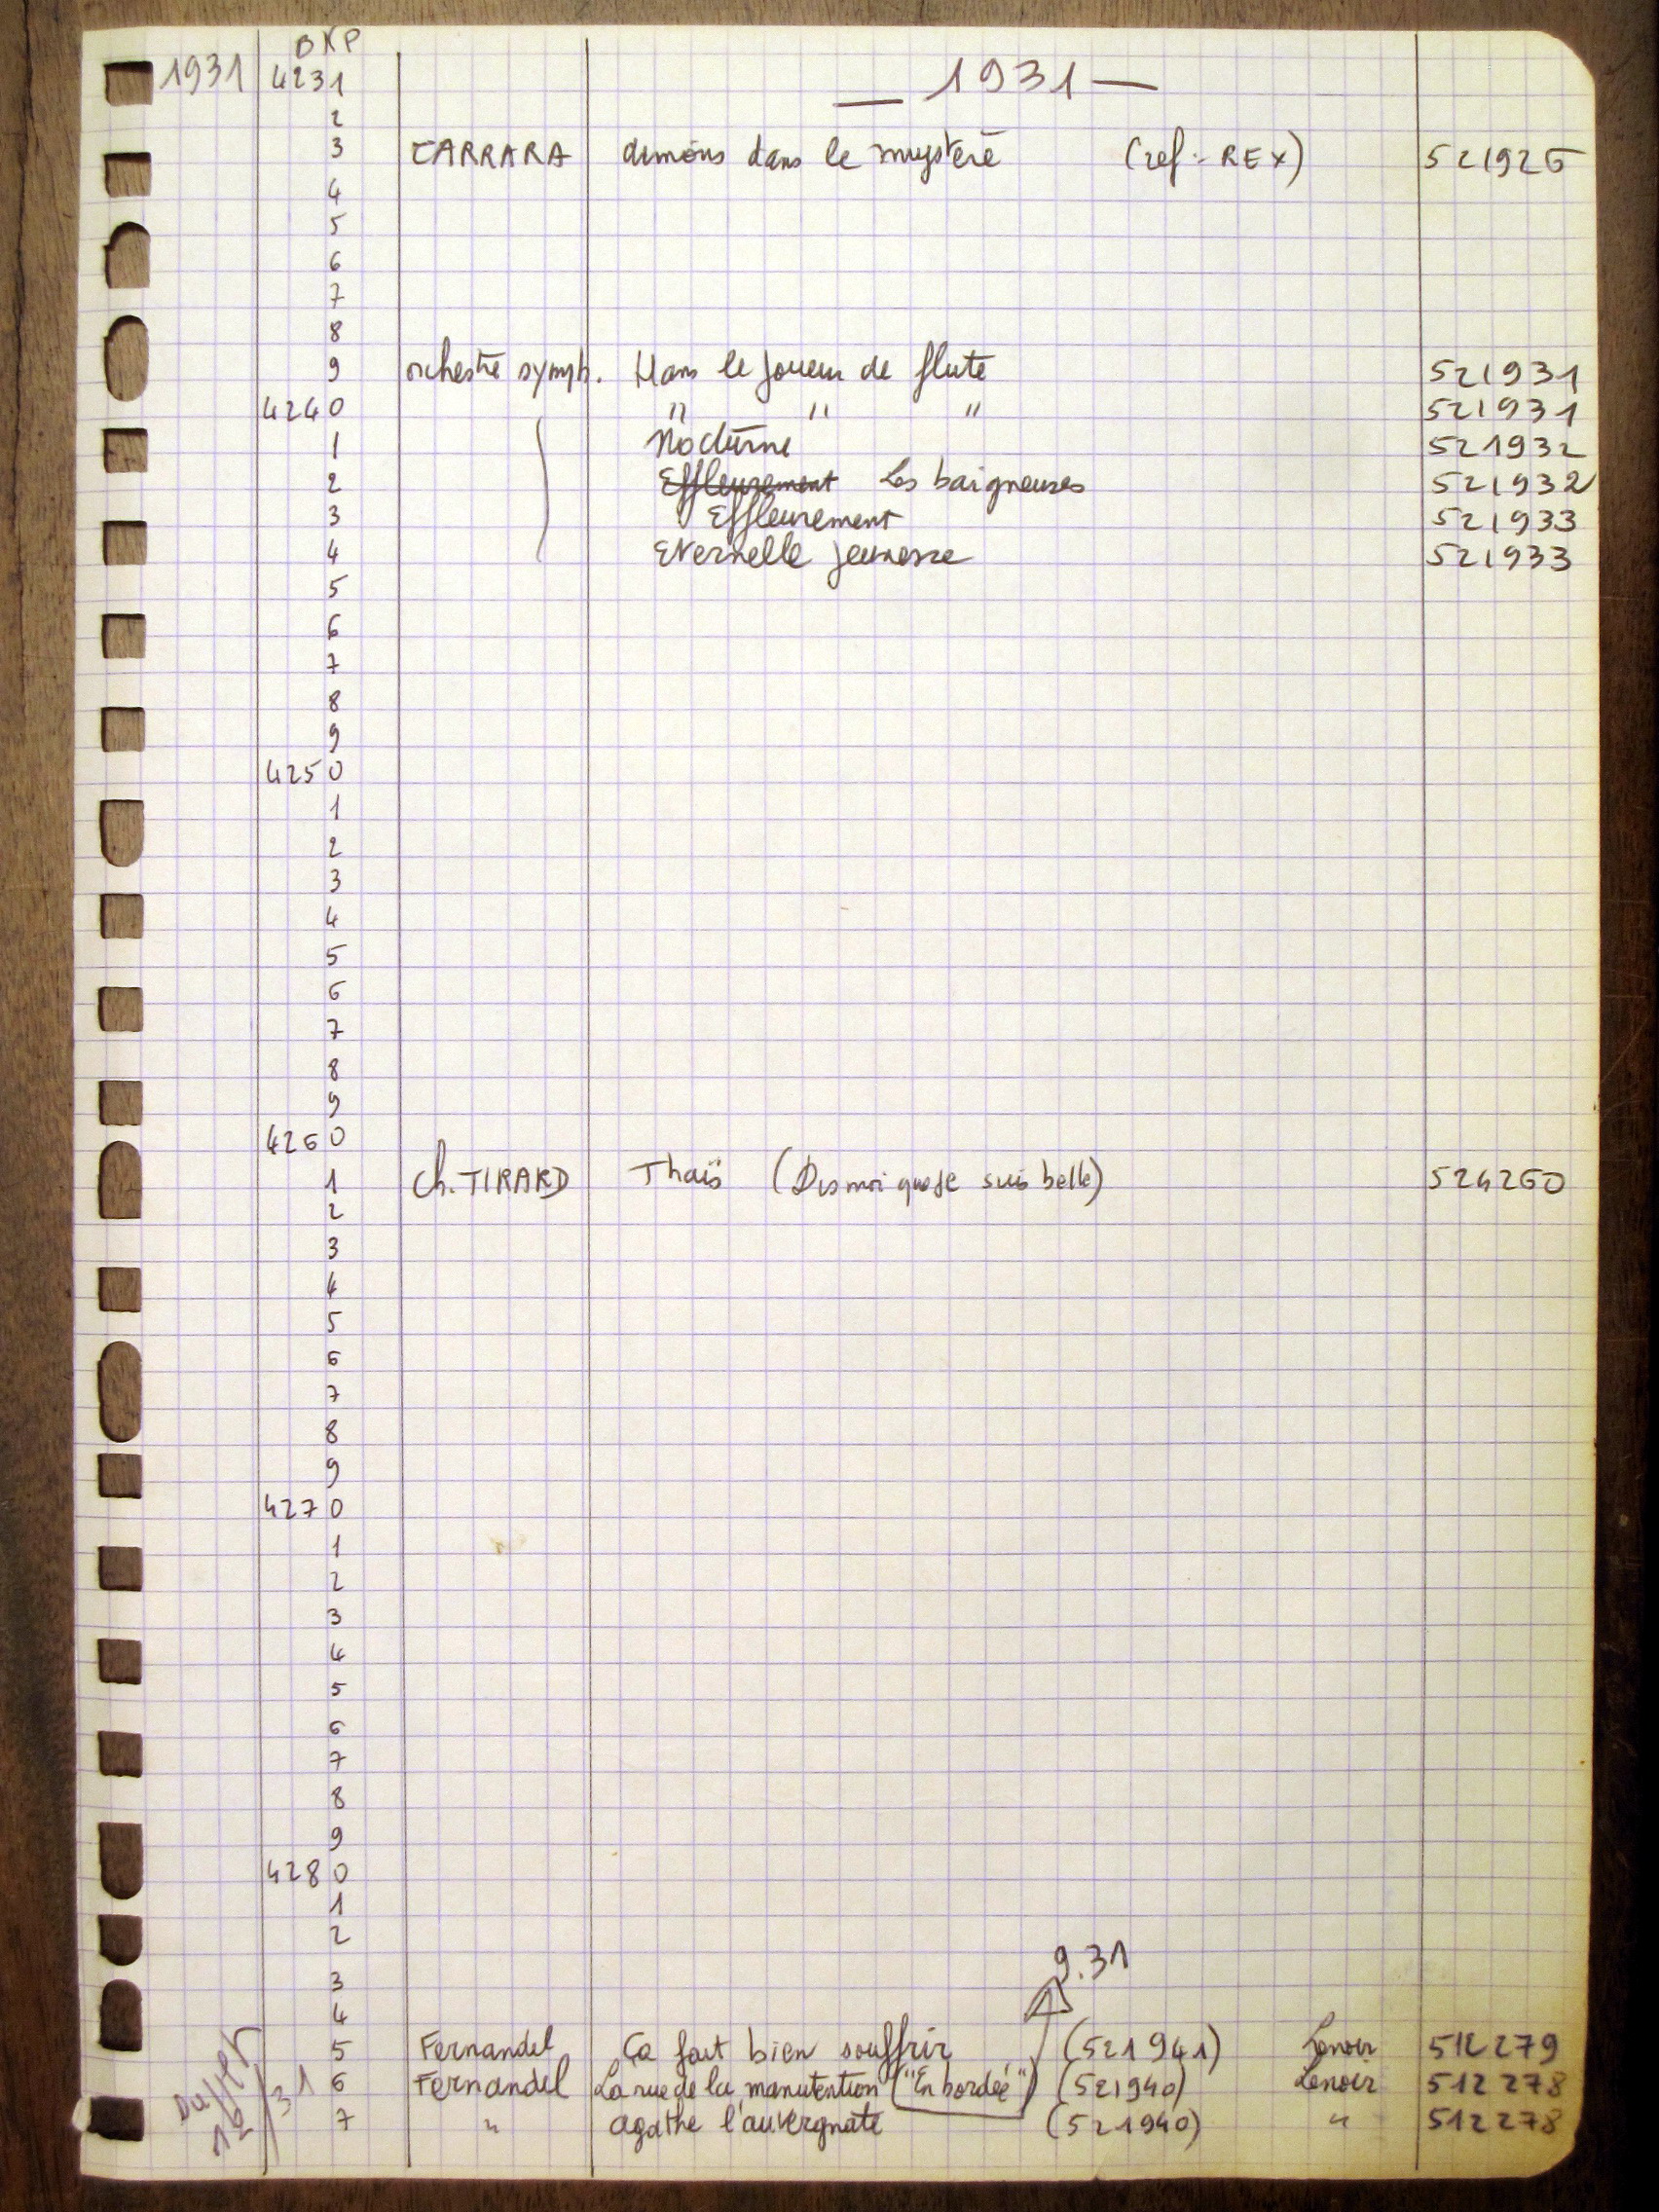 BKP
1931 4231 — 1931 —
2
3 CARRARA aimons dans le mystère (ref: REX) 521926
4
5
6
7
8
9 orchestre symph. Hans le joueur de flute 521931
4240 " " " 521931
1 Nocturne 521932
2 Effleurement Les baigneuses 521932
3 Effleurement 521933
4 Eternelle jeunesse 521933
5
6
7
8
9
4250
1
2
3
4
5
6
7
8
9
4260
1 Ch. TIRARD Thaïs (Dis moi que je suis belle) 524260
2
3
4
5
6
7
8
9
4270
1
2
3
4
5
6
7
8
9
4280
1
2
9.31
3
4
5 Fernandel Ça fait bien souffrir (521941) Lenoir 512279
6 Fernandel La rue de la manutention ("En bordée") (521940) Lenoir 512278
7 " agathe l'auvergnate (521940) " 512278